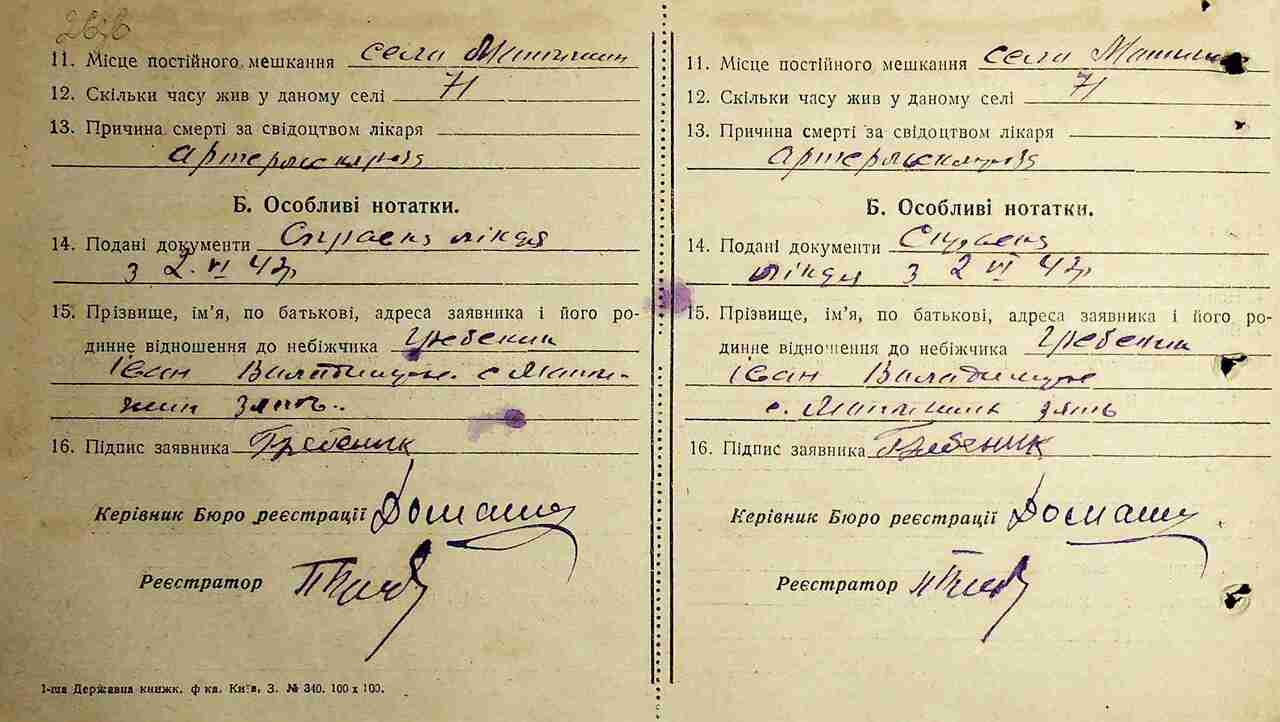 11. Місце постійного мешкання села
12. Скільки часу жив у даному селі 71
13. Причина смерті за свідоцтвом лікаря
Б. Особливі нотатки.
14. Подані документи
з 2. VI 42р
15. Прізвище, ім'я, по батькові, адреса заявника і його ро-
динне відношення до небіжчика Гребеник
Іван
зять.
16. Підпис заявника Гребеник
Керівник Бюро реєстрації
Реєстратор
1-ша Державна книжк. ф-ка. Київ, З. № 340. 100 х 100.
11. Місце постійного мешкання села
12. Скільки часу жив у даному селі 71
13. Причина смерті за свідоцтвом лікаря
Б. Особливі нотатки.
14. Подані документи
з 2 VI 42р
15. Прізвище, ім'я, по батькові, адреса заявника і його ро-
динне відношення до небіжчика Гребеник
Іван
с. зять
16. Підпис заявника Гребеник
Керівник Бюро реєстрації
Реєстратор